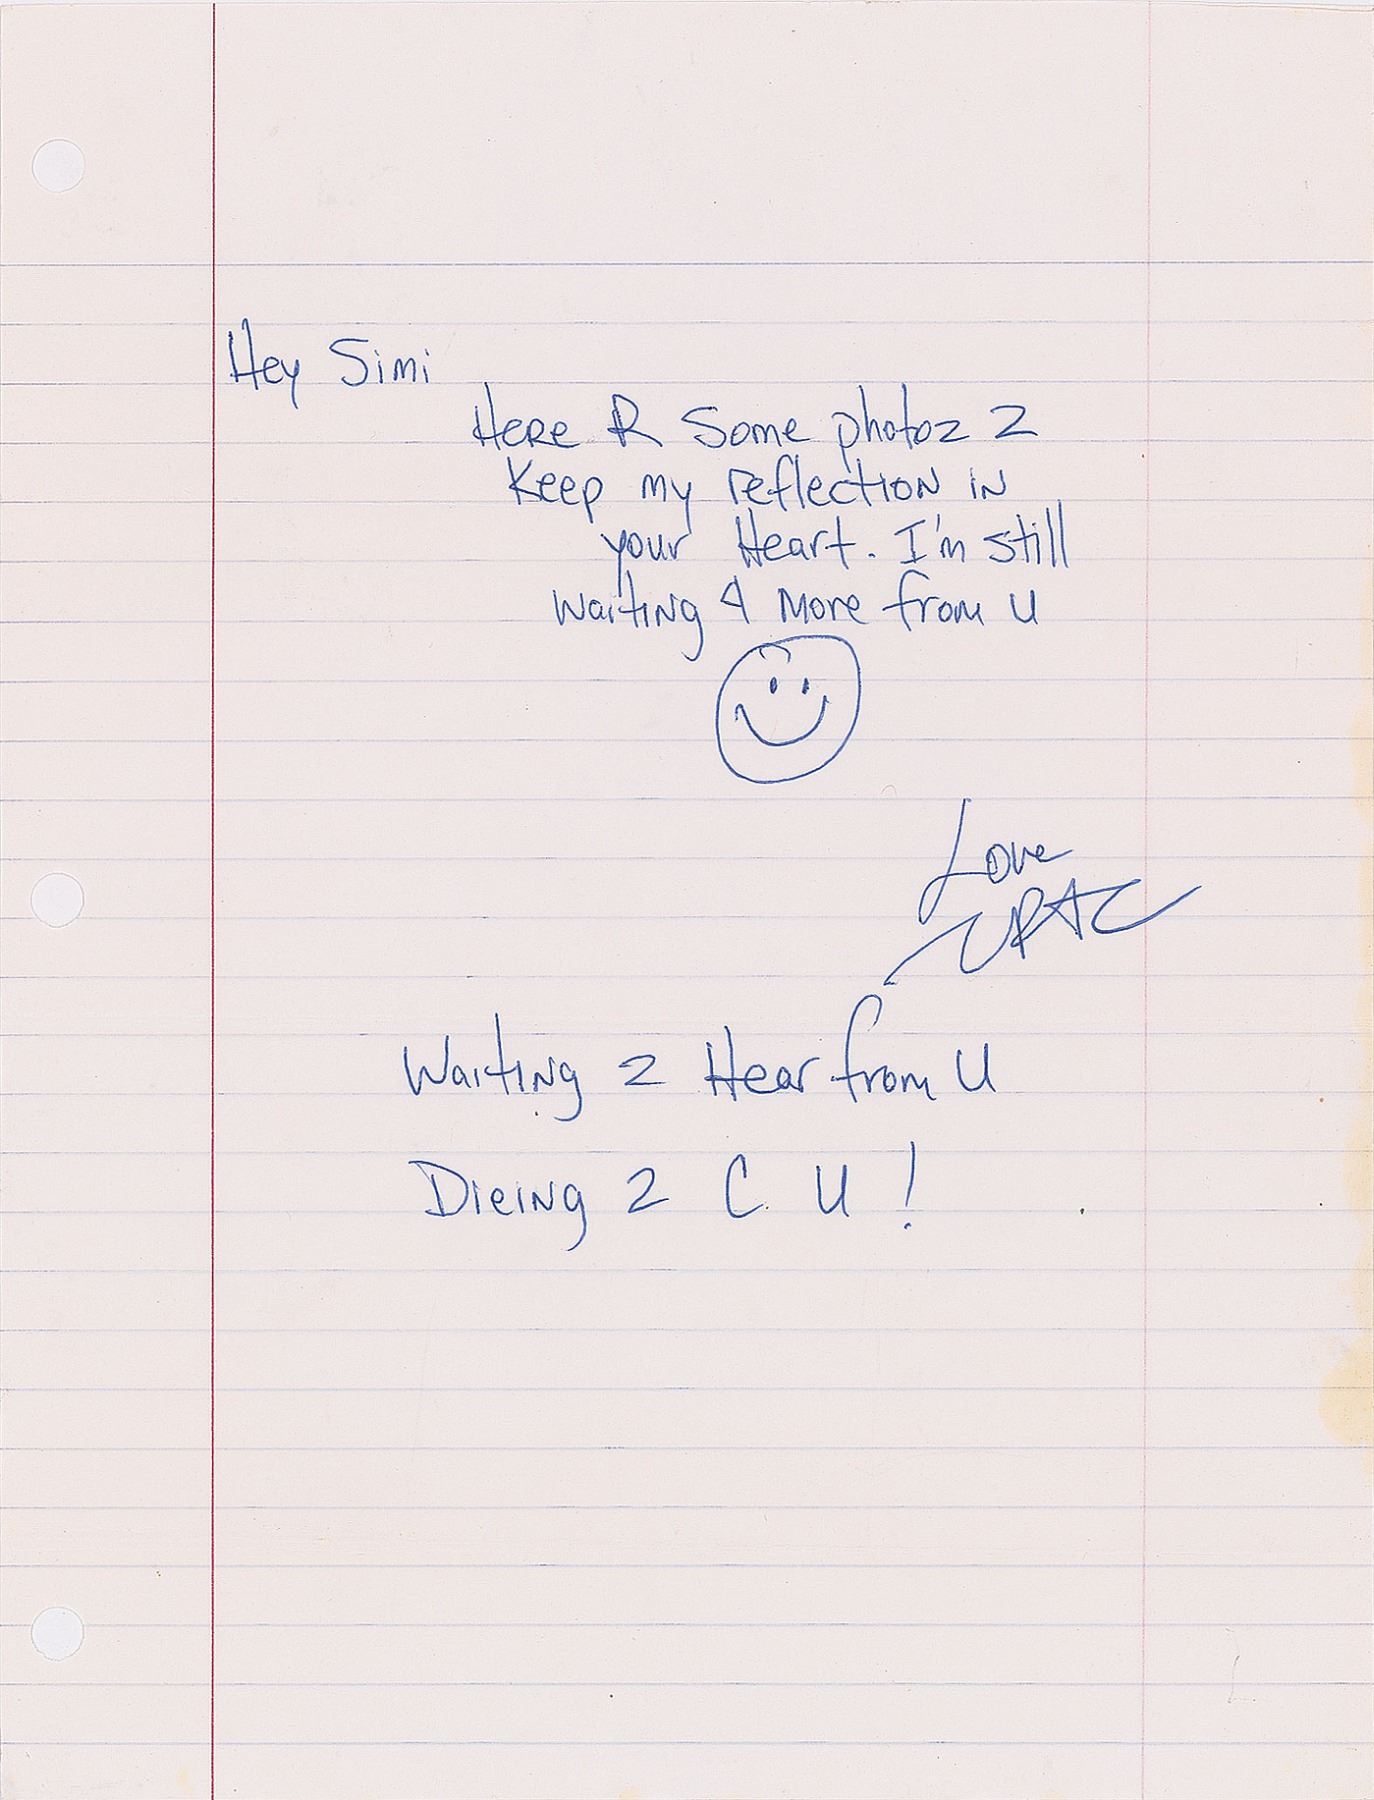 Hey Simi
Here R Some photoz 2
Keep my reflection in
your Heart. I'm still
Waiting 4 More from U
Love
2PAC
Waiting 2 Hear from U
Dieing 2 C U!